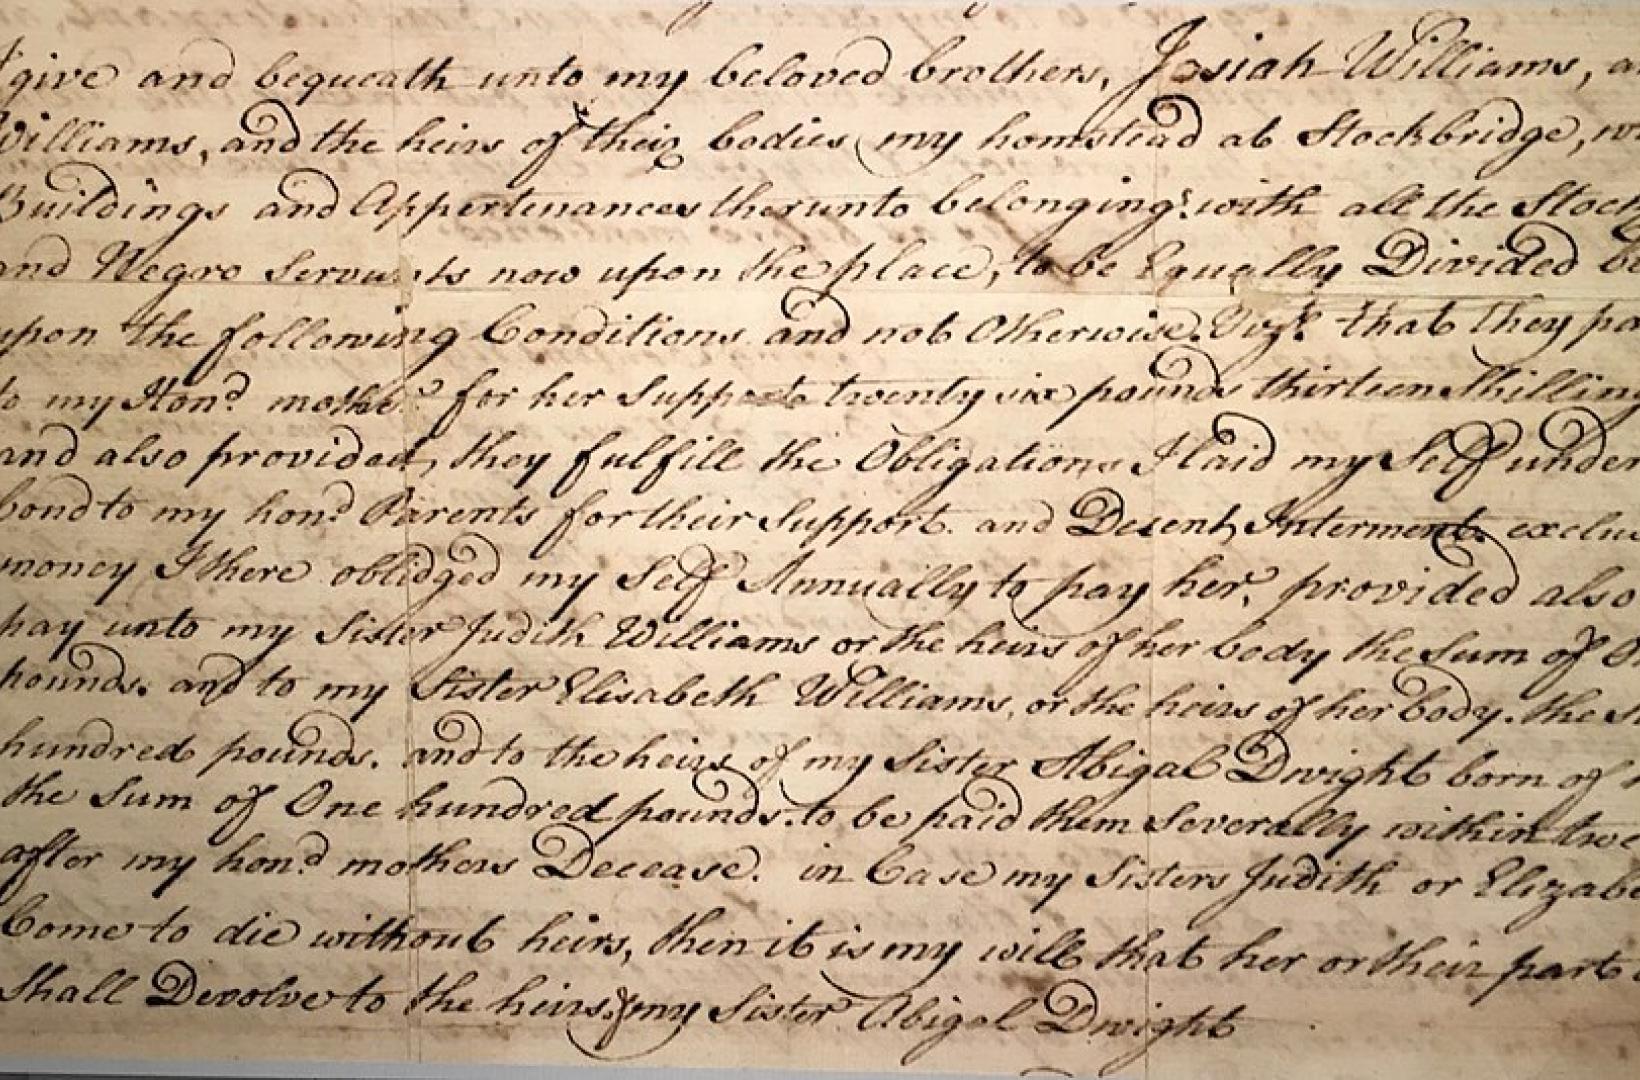 give and bequeath unto my beloved brothers, Josiah Williams,
Williams, and the heirs of their bodies my homstead at Stockbridge,
Buildings and Appertenances therunto belonging: with all the Stock
and Negro Servants now upon the place, to be Equally Divided be
upon the following Conditions and not Otherwise. Vizt. that they pa
to my Hond. mother for her Support twenty six pounds thirteen Shilling
and also provided, they fulfill the Obligations I laid my Self under
bond to my hond. Parents for their Support and Decent Interment exclu
money I there oblidged my Self Annually to pay her, provided also
pay unto my Sister Judith Williams or the heirs of her body the Sum of
pounds. and to my Sister Elisabeth Williams, or the heirs of her body. the
hundred pounds. and to the heirs of my Sister Abigal Dwight born of
the Sum of One hundred pounds. to be paid them Severally within
after my hond. mothers Decease. in Case my Sisters Judith or Elizabe
Come to die without heirs, then it is my will that her or their part
Shall Devolve to the heirs of my Sister Abigal Dwight